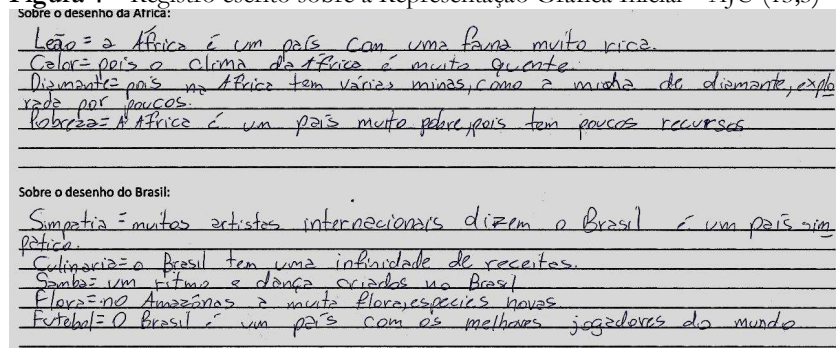 Figura 4 – Registro escrito sobre a Representação Gráfica Inicial – AJC (13,5)
Sobre o desenho da África:
Leão = a África é um país com uma fauna muito rica.
Calor = pois o clima da África é muito quente.
Diamante = pois na África tem várias minas, como a minha de diamante, explo
rada por poucos.
Pobreza = A África é um país muito pobre, pois tem poucos recursos
Sobre o desenho do Brasil:
Simpatia = muitos artistas internacionais dizem o Brasil é um país sim
pático.
Culinaria = o Brasil tem uma infinidade de receitas.
Samba = um ritmo e dança criados no Brasil
Flora = no Amazônas a muita flora, especies novas
Futebol = O Brasil é um país com os melhores jogadores do mundo